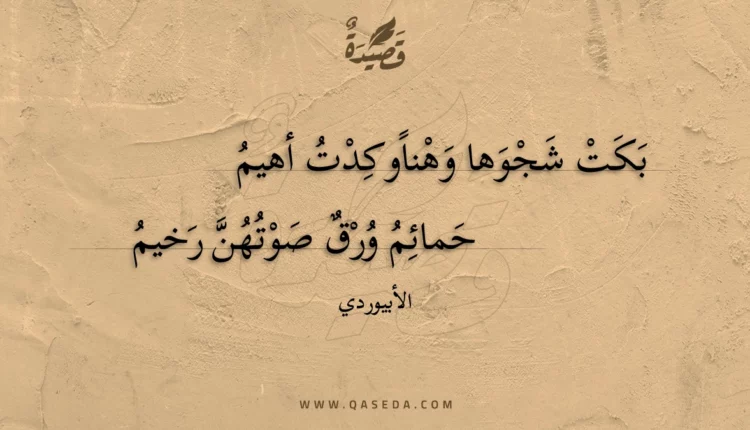 قَصِيدَةٌ
بَكَتْ شَجْوَها وَهْناًوكِدْتُ أهيمُ
حَمائِمُ وُرْقٌ صَوْتُهُنَّ رَخيمُ
الأبيوردي
WWW.QASEDA.COM